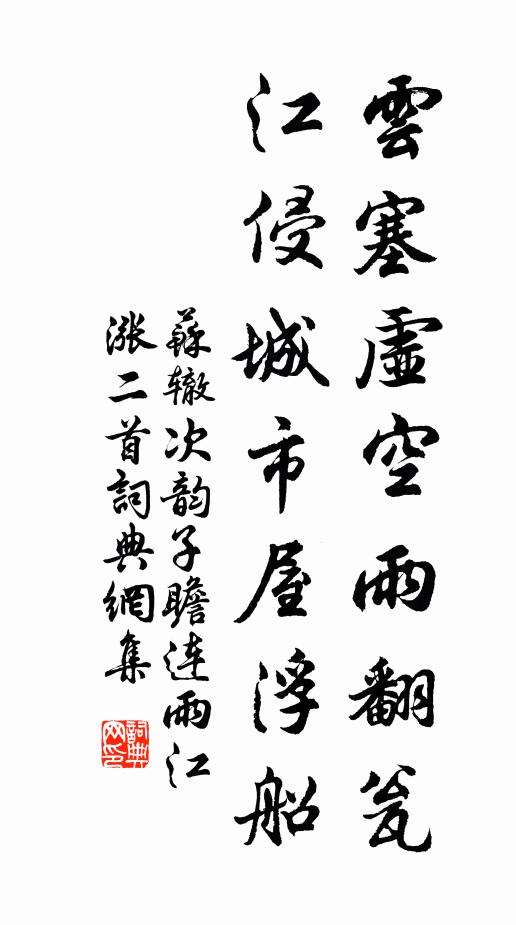 雲塞虛空雨翻瓮
江侵城市屋浮船
蘇辙次韵子瞻连雨江
涨二首詞典網集
詞典
网印